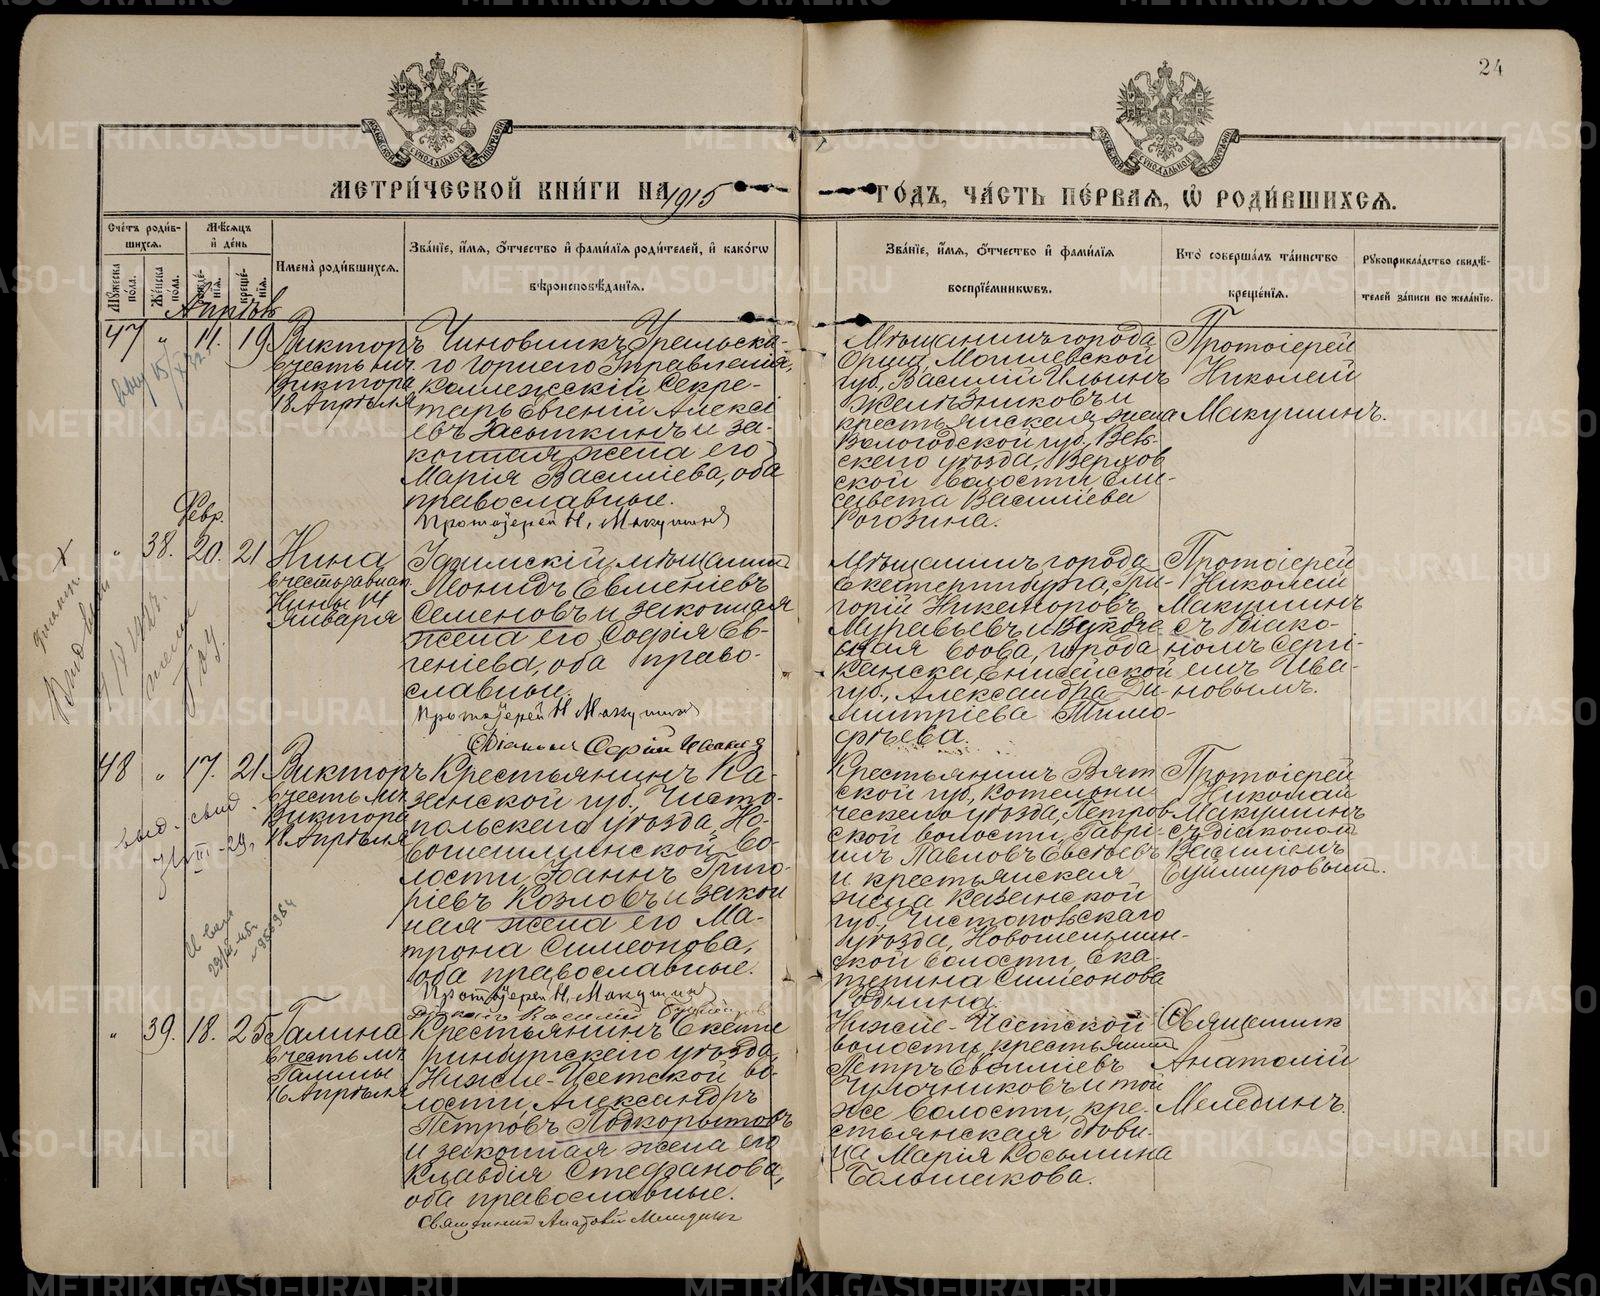 24
МЕТРИ́ЧЕСКОЙ КНИ́ГИ НА 1915
ГО́ДЪ, ЧА́СТЬ ПЕ́РВАѦ, Ѡ҆ РОДИ́ВШИХСѦ.
Сче́тъ роди́в-
шихсѧ.
Мѣ́сѧцъ
и҆ де́нь
Му́жеска
по́ла.
Же́нска
по́ла.
рожде́-
нїѧ.
креще́-
нїѧ.
Имена̀ роди́вшихсѧ.
Зва́нїе, и҆́мѧ, ѻ҆́тчество и҆ фами́лїѧ роди́телей, и҆ како́гѡ
вѣроисповѣ́данїѧ.
Зва́нїе, и҆́мѧ, ѻ҆́тчество и҆ фами́лїѧ
воспрїе́мникѡвъ.
Кто̀ соверша́лъ та́инство
креще́нїѧ.
Рукоприкла́дство свидѣ́-
телей за́писи по жела́нїю.
Апрѣль
47 " 11. 19
Викторъ
въ честь мч.
Виктора
18 Апрѣля
Чиновникъ Уральска-
го Горнаго Управленія,
Коллежскій Секре-
тарь Евгеній Алексі
евъ Засыпкинъ и за-
конная жена его
Марія Василіева, оба
православные.
Протоіерей Н. Макушинъ
Мѣщанинъ города
Орши, Могилевской
губ., Василій Ильинъ
Желѣзниковъ и
крестьянская жена
Вологодской губ., Вель-
скаго уѣзда, Верхов
ской волости Ели-
савета Василіева
Рогозина.
Протоіерей
Николай
Макушинъ.
Февр.
" 38. 20. 21
Нина
Нины 14
Января
Уфимскій мѣщанин
Леонидъ Евменіевъ
Семеновъ и законная
жена его Софія Ев-
геніева, оба право-
славные.
Протоіерей Н Макушинъ
Діаконъ Сергій Ивановъ
Мѣщанинъ города
Екатеринбурга, Гри-
горій Никаноровъ
Муравьевъ и купече-
ская вдова, города
Канска, Енисейской
губ., Александра Ди-
митріева Тимо-
феева.
Протоіерей
Николай
Макушинъ
съ діако-
номъ Сергі-
емъ Ива-
новымъ.
48 " 17. 21
Викторъ
въ честь мч.
Виктора
18 Апрѣля
Крестьянинъ Ка-
занской губ., Чисто-
польскаго уѣзда, Но-
вошешминской во-
лости, Іоаннъ Григо-
ріевъ Козловъ и закон
ная жена его Ма-
трона Симеонова,
оба православные.
Протоіерей Н. Макушинъ
Крестьянинъ Вят
ской губ., Котельни-
ческаго уѣзда, Петров
ской волости, Гаврі-
илъ Павловъ Евсѣевъ
и крестьянская
жена Казанской
губ., Чистопольскаго
уѣзда, Новошешмин-
ской волости, Ека-
терина Симеонова
Протоіерей
Николай
Макушинъ
съ діакономъ
Василіемъ
" 39. 18. 25
Галина
въ честь мч.
Галины
16 Апрѣля
Крестьянинъ Екате
ринбургскаго уѣзда,
Нижне-Исетской во-
лости, Александръ
Петровъ Подкорытовъ
и законная жена его
Клавдія Стефанова,
оба православные.
Священникъ Анатолій Мелединъ
Нижне-Исетской
волости, крестьянин
Чулочниковъ и той
же волости, кре-
стьянская дѣви-
ца Марія Косьмина
Большакова.
Священникъ
Анатолій
Мелединъ.